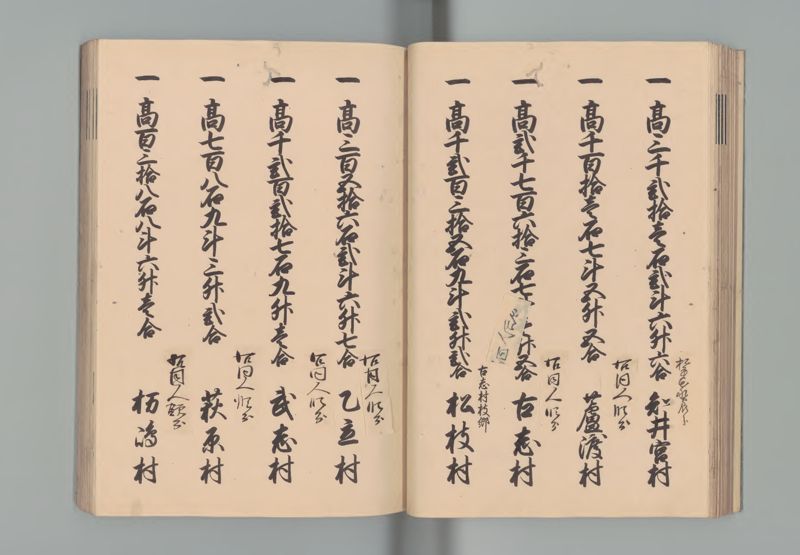 一 高三千弐拾壱石弐斗六升六合 知井宮村
一 高千百拾壱石七斗五升五合 蘆渡村
右同人
一 高弐千七百六拾三石七 升五合 古志村
右同人
一 高千弐百三拾五石九斗弐升弐合 松枝村
古志村枝郷
一 高三百五拾六石弐斗六升七合 乙立村
右同人
一 高千弐百弐拾七石九升壱合 武志村
右同人
一 高七百八石九斗三升弐合 萩原村
右同人
一 高百三拾八石八斗六升壱合 村
右同人